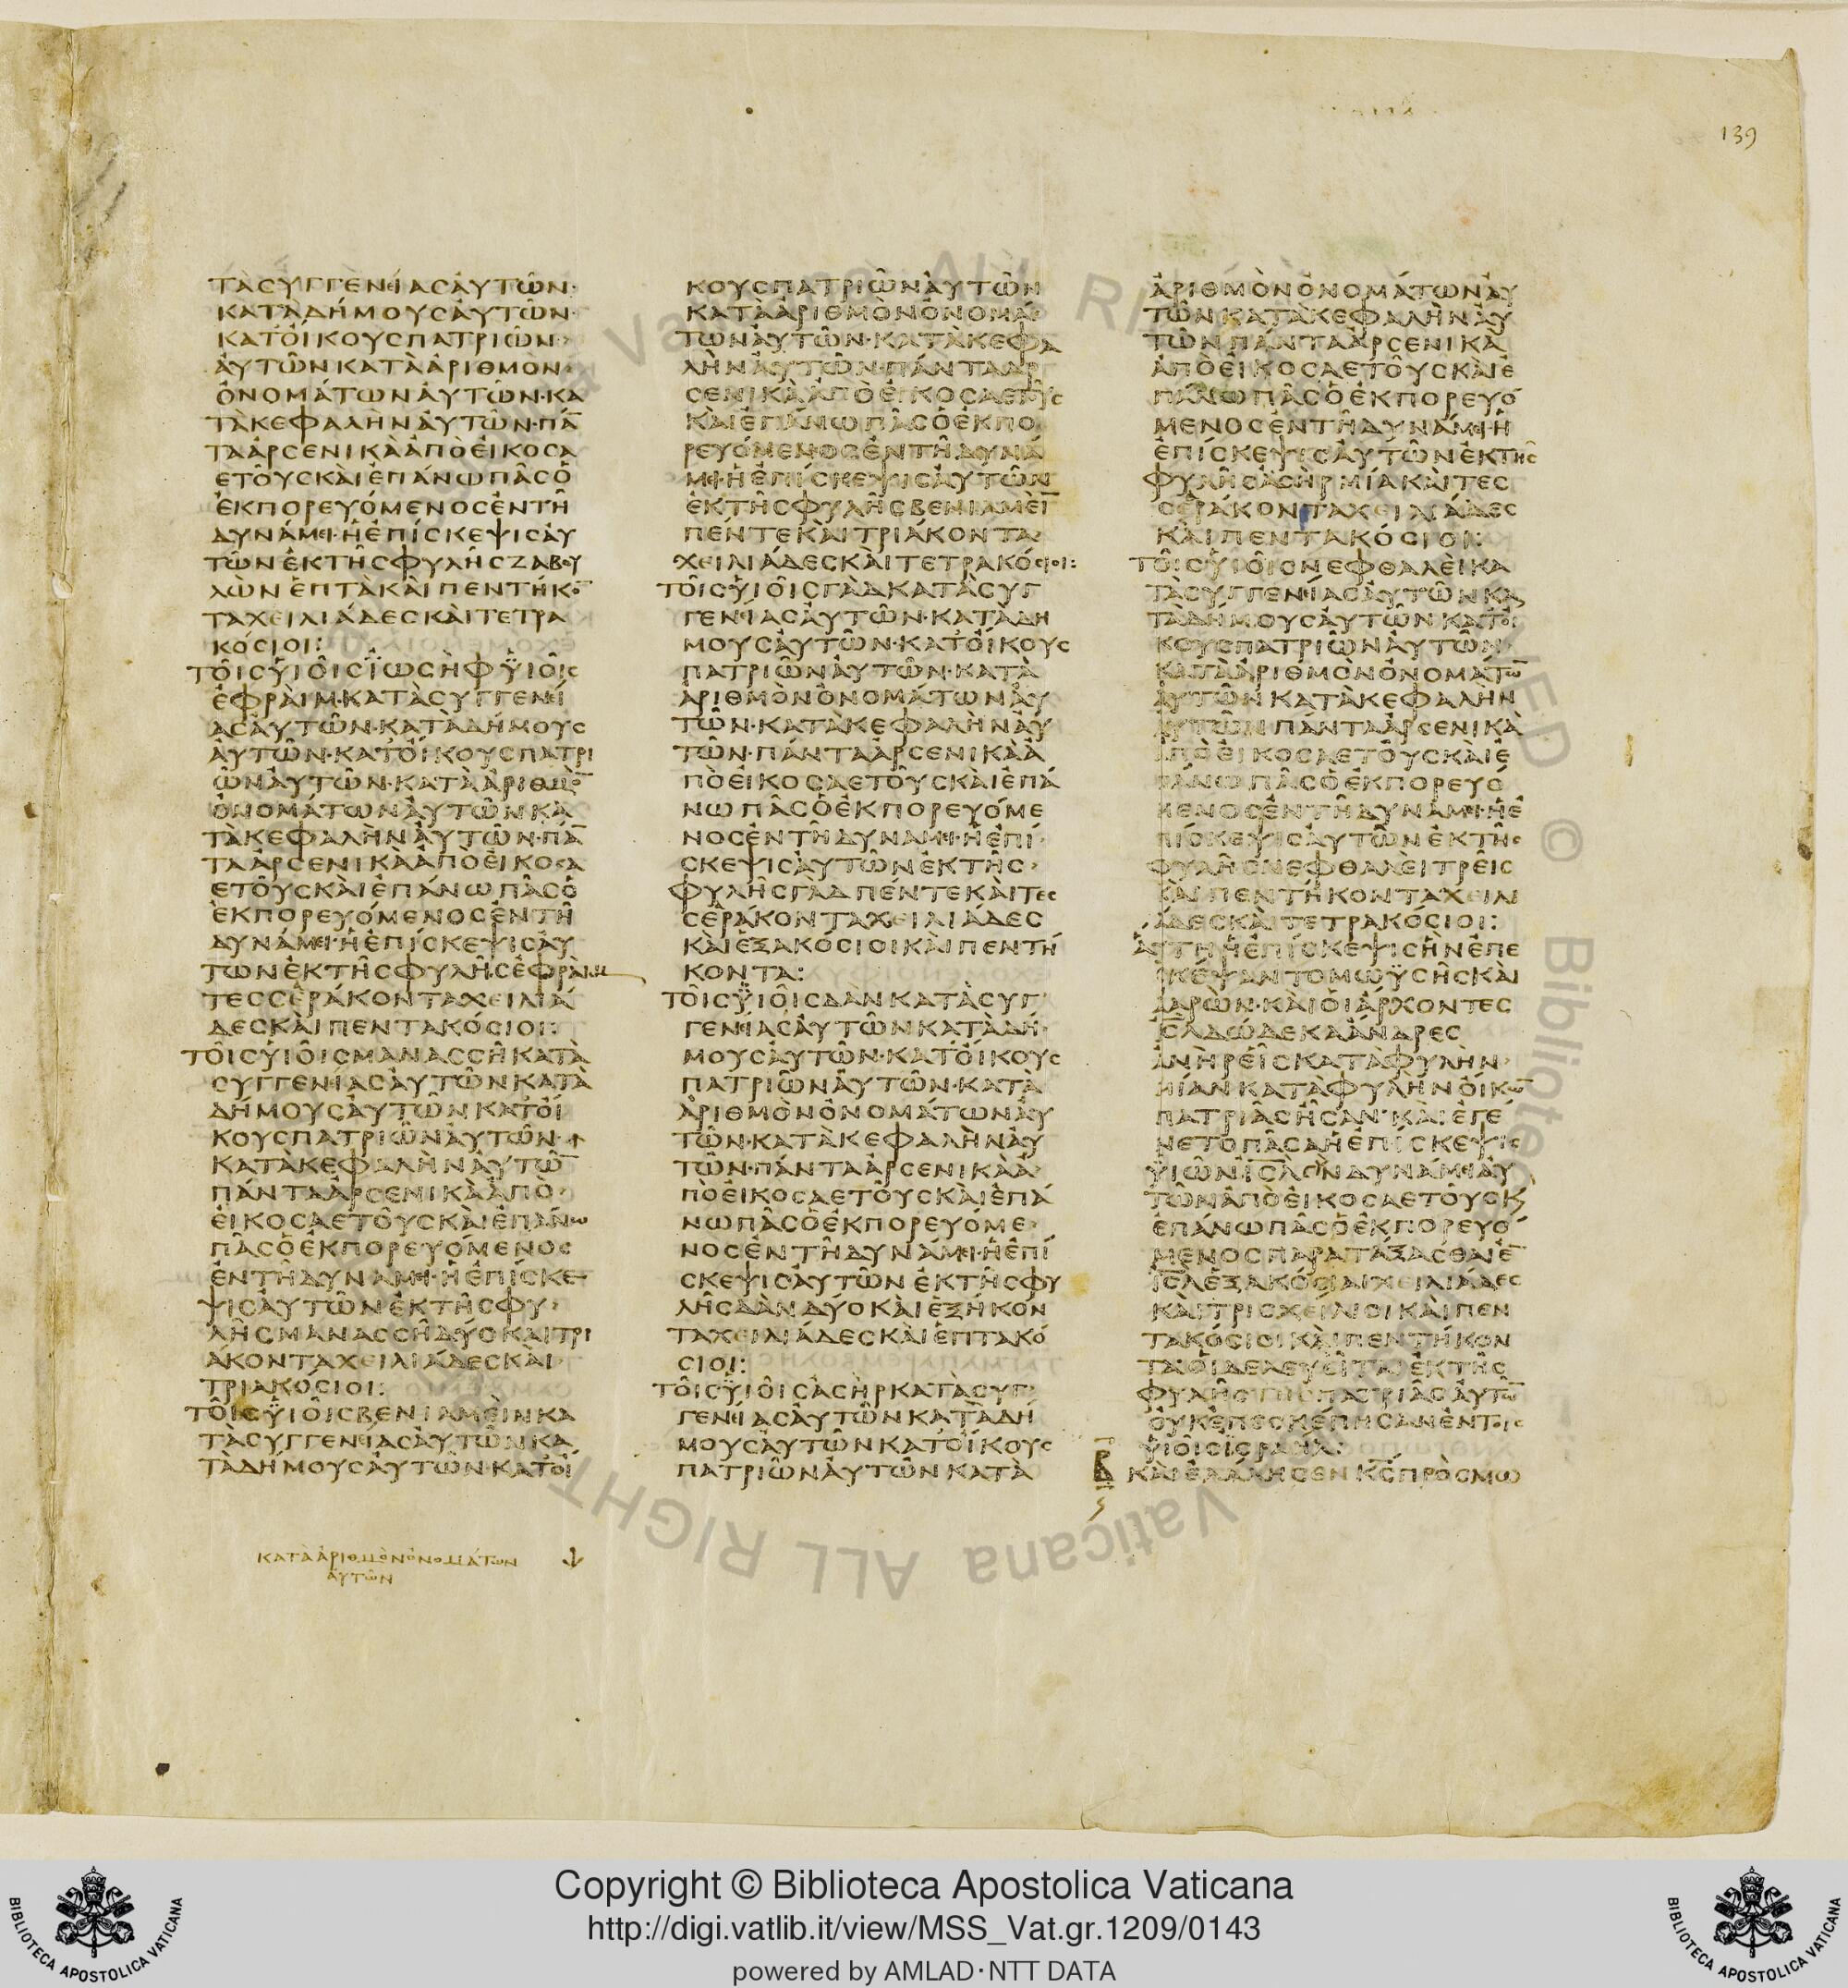 139
ΤᾺϹΥΓΓΕΝΕΊΑϹΑΥ̓ΤΩ͂Ν·
ΚΑΤᾺΔΉΜΟΥϹΑΥ̓ΤΩ͂Ν·
ΚΑΤʼΟΊ̓ΚΟΥϹΠΑΤΡΙΩ͂Ν
ΑΥ̓ΤΩ͂ΝΚΑΤᾺἈΡΙΘΜῸΝ
ὈΝΟΜΆΤΩΝΑΥ̓ΤΩ͂Ν·ΚΑ
ΤᾺΚΕΦΑΛῊΝΑΥ̓ΤΩ͂Ν·ΠΆ̅
ΤΑἌΡϹΕΝΙΚᾺἈΠῸΕἸΚΟϹΑ
ΕΤΟΥ͂ϹΚΑῚἘΠΆΝΩΠΑ͂ϹὉ
ἘΚΠΟΡΕΥΌΜΕΝΟϹἘΝΤΗ͂
ΔΥΝΆΜΕΙ·Ἡ̔ἘΠΊϹΚΕΨΙϹΑΥ̓
ΤΩ͂ΝἘΚΤΗ͂ϹΦΥΛΗ͂ϹΖΑΒΟΥ
ΛῺΝἙΠΤᾺΚΑῚΠΕΝΤΉΚΟ̅
ΤΑΧΕΙΛΙΆΔΕϹΚΑῚΤΕΤΡΑ
ΚΌϹΙΟΙ:
ΤΟΙ͂ϹΥἹΟΙ͂ϹΪΩϹῊΦΥἹΟΙ͂Ϲ
ἘΦΡΑῚΜ·ΚΑΤᾺϹΥΓΓΕΝΕΊ
ΑϹΑΥ̓ΤΩ͂Ν·ΚΑΤᾺΔΉΜΟΥϹ
ΑΥ̓ΤΩ͂Ν·ΚΑΤʼΟΊ̓ΚΟΥϹΠΑΤΡΙ
Ω͂ΝΑΥ̓ΤΩ͂Ν·ΚΑΤᾺἈΡΙΘΜῸ̅
ὈΝΟΜΆΤΩΝΑΥ̓ΤΩ͂ΝΚΑ
ΤᾺΚΕΦΑΛῊΝΑΥ̓ΤΩ͂Ν·ΠΆ̅
ΤΑἌΡϹΕΝΙΚᾺἈΠῸΕἸΚΟϹΑ
ΕΤΟΥ͂ϹΚΑῚἘΠΆΝΩΠΑ͂ϹὉ
ἘΚΠΟΡΕΥΌΜΕΝΟϹἘΝΤΗ͂
ΔΥΝΆΜΕΙ·ἩἘΠΊϹΚΕΨΙϹΑΥ̓
ΤΩ͂ΝἘΚΤΗ͂ϹΦΥΛΗ͂ϹἘΦΡΑῚΜ
ΤΕϹϹΕΡΆΚΟΝΤΑΧΕΙΛΙΆ
ΔΕϹΚΑῚΠΕΝΤΑΚΌϹΙΟΙ:
ΤΟΙ͂ϹΥἹΟΙ͂ϹΜΑΝΑϹϹΗ͂ΚΑΤᾺ
ϹΥΓΓΕΝΕΊΑϹΑΥ̓ΤΩ͂ΝΚΑΤᾺ
ΔΉΜΟΥϹΑΥ̓ΤΩ͂ΝΚΑΤʼΟΊ̓
ΚΟΥϹΠΑΤΡΙΩ͂ΝΑΥ̓ΤΩ͂Ν·
ΚΑΤᾺΚΕΦΑΛῊΝΑΥ̓ΤΩ͂̅
ΠΆΝΤΑἌΡϹΕΝΙΚᾺἈΠῸ
ΕἸΚΟϹΑΕΤΟΥ͂ϹΚΑῚἘΠΆΝΩ
ΠΑ͂ϹὉἘΚΠΟΡΕΥΌΜΕΝΟϹ
ἘΝΤΗ͂ΔΥΝΆΜΕΙ·ἩἘΠΊϹΚΕ
ΨΙϹΑΥ̓ΤΩ͂ΝἘΚΤΗ͂ϹΦΥ
ΛΗ͂ϹΜΑΝΑϹϹΗ͂ΔΎΟΚΑῚΤΡΙ
ΆΚΟΝΤΑΧΕΙΛΙΆΔΕϹΚΑῚ
ΤΡΙΑΚΌϹΙΟΙ:
ΤΟΙ͂ϹΥἹΟΙ͂ϹΒΕΝΙΑΜΕῚΝΚΑ
ΤᾺϹΥΓΓΕΝΕΊΑϹΑΥ̓ΤΩ͂ΝΚΑ
ΤᾺΔΉΜΟΥϹΑΥ̓ΤΩ͂Ν·ΚΑΤʼΟΊ̓
ΚΑΤᾺἈΡΙΘΜῸΝὈΝΟΜΆΤΩΝ
ΑΥ̓ΤΩ͂Ν
ΚΟΥϹΠΑΤΡΙΩ͂ΝΑΥ̓ΤΩ͂Ν
ΚΑΤᾺἈΡΙΘΜῸΝὈΝΟΜΆ
ΤΩΝΑΥ̓ΤΩ͂Ν·ΚΑΤᾺΚΕΦΑ
ΛῊΝΑΥ̓ΤΩ͂Ν·ΠΆΝΤΑἌΡ
ϹΕΝΙΚᾺἈΠῸΕἸΚΟϹΑΕΤΟΥ͂Ϲ
ΚΑῚἘΠΆΝΩΠΑ͂ϹὉἘΚΠΟ
ΡΕΥΌΜΕΝΟϹἘΝΤΗ͂ΔΥΝΆ
ΜΕΙ·ἩἘΠΊϹΚΕΨΙϹΑΥ̓ΤΩ͂Ν
ἘΚΤΗ͂ϹΦΥΛΗ͂ϹΒΕΝΙΑΜΕῚ̅
ΠΈΝΤΕΚΑῚΤΡΙΆΚΟΝΤΑ
ΧΕΙΛΙΆΔΕϹΚΑῚΤΕΤΡΑΚΌϹΙΟΙ:
ΤΟΙ͂ϹΥἹΟΙ͂ϹΓᾺΔΚΑΤᾺϹΥΓ
ΓΕΝΕΊΑϹΑΥ̓ΤΩ͂Ν·ΚΑΤᾺΔΗ
ΜΟΥϹΑΥ̓ΤΩ͂Ν·ΚΑΤʼΟΊ̓ΚΟΥϹ
ΠΑΤΡΙΩ͂ΝΑΥ̓ΤΩ͂Ν·ΚΑΤᾺ
ἈΡΙΘΜῸΝὈΝΟΜΆΤΩΝΑΥ̓
ΤΩ͂Ν·ΚΑΤᾺΚΕΦΑΛῊΝΑΥ̓
ΤΩ͂Ν·ΠΆΝΤΑἌΡϹΕΝΙΚᾺἈ
ΠῸΕἸΚΟϹΑΕΤΟΥ͂ϹΚΑῚἘΠΆ
ΝΩΠΑ͂ϹὉἘΚΠΟΡΕΥΌΜΕ
ΝΟϹἘΝΤΗ͂ΔΥΝΆΜΕΙ·ἩἘΠΊ
ϹΚΕΨΙϹΑΥ̓ΤΩ͂ΝἘΚΤΗ͂Ϲ
ΦΥΛΗ͂ϹΓᾺΔΠΈΝΤΕΚΑῚΤΕϹ
ϹΕΡΆΚΟΝΤΑΧΕΙΛΙΆΔΕϹ
ΚΑῚἙΞΑΚΌϹΙΟΙΚΑῚΠΕΝΤΉ
ΚΟΝΤΑ:
ΤΟΙ͂ϹΥἹΟΙ͂ϹΔᾺΝΚΑΤᾺϹΥΓ
ΓΕΝΕΊΑϹΑΥ̓ΤΩ͂ΝΚΑΤᾺΔΉ
ΜΟΥϹΑΥ̓ΤΩ͂Ν·ΚΑΤʼΟΊ̓ΚΟΥϹ
ΠΑΤΡΙΩ͂ΝΑΥ̓ΤΩ͂Ν·ΚΑΤᾺ
ἈΡΙΘΜῸΝὈΝΟΜΆΤΩΝΑΥ̓
ΤΩ͂Ν·ΚΑΤᾺΚΕΦΑΛῊΝΑΥ̓
ΤΩ͂Ν·ΠΆΝΤΑἌΡϹΕΝΙΚᾺἈ
ΠῸΕἸΚΟϹΑΕΤΟΥ͂ϹΚΑῚἘΠΆ
ΝΩΠΑ͂ϹὉἘΚΠΟΡΕΥΌΜΕ
ΝΟϹἘΝΤΗ͂ΔΥΝΆΜΕΙ·ἩἘΠΊ
ϹΚΕΨΙϹΑΥ̓ΤΩ͂ΝἘΚΤΗ͂ϹΦΥ
ΛΗ͂ϹΔᾺΝΔΎΟΚΑῚἙΞΉΚΟΝ
ΤΑΧΕΙΛΙΆΔΕϹΚΑῚἙΠΤΑΚΌ
ϹΙΟΙ:
ΤΟΙ͂ϹΥἹΟΙ͂ϹἈϹῊΡΚΑΤᾺϹΥΓ
ΓΕΝΕΊΑϹΑΥ̓ΤΩ͂ΝΚΑΤᾺΔΉ
ΜΟΥϹΑΥ̓ΤΩ͂ΝΚΑΤʼΟΊ̓ΚΟΥϹ
ΠΑΤΡΙΩ͂ΝΑΥ̓ΤΩ͂ΝΚΑΤᾺ
ἈΡΙΘΜῸΝὈΝΟΜΆΤΩΝΑΥ̓
ΤΩ͂ΝΚΑΤᾺΚΕΦΑΛῊΝΑΥ̓
ΤΩ͂ΝΠΆΝΤΑἌΡϹΕΝΙΚᾺ
ἈΠῸΕἸΚΟϹΑΕΤΟΥ͂ϹΚΑῚἘ
ΠΆΝΩΠΑ͂ϹὉἘΚΠΟΡΕΥΌ
ΜΕΝΟϹἘΝΤΗ͂ΔΥΝΆΜΕΙ·Ἡ
ἘΠΊϹΚΕΨΙϹΑΥ̓ΤΩ͂ΝἘΚΤΗ͂Ϲ
ΦΥΛΗ͂ϹἈϹῊΡΜΊΑΚΑῚΤΕϹ
ϹΕΡΆΚΟΝΤΑΧΕΙΛΙΆΔΕϹ
ΚΑῚΠΕΝΤΑΚΌϹΙΟΙ:
ΤΟΙ͂ϹΥἹΟΙ͂ϹΝΕΦΘΑΛΕῚΚΑ
ΤᾺϹΥΓΓΕΝΕΊΑϹΑΥ̓ΤΩ͂ΝΚΑ
ΤᾺΔΉΜΟΥϹΑΥ̓ΤΩ͂ΝΚΑΤʼΟΊ̓
ΚΟΥϹΠΑΤΡΙΩ͂ΝΑΥ̓ΤΩ͂Ν
ΚΑΤᾺἈΡΙΘΜῸΝὈΝΟΜΆΤΩ̅
ΑΥ̓ΤΩ͂ΝΚΑΤᾺΚΕΦΑΛῊΝ
ΑΥ̓ΤΩ͂ΝΠΆΝΤΑἌΡϹΕΝΙΚᾺ
ἈΠῸΕἸΚΟϹΑΕΤΟΥ͂ϹΚΑῚἘ
ΠΆΝΩΠΑ͂ϹὉἘΚΠΟΡΕΥΌ
ΜΕΝΟϹἘΝΤΗ͂ΔΥΝΆΜΕΙ·ἩἘ
ΠΊϹΚΕΨΙϹΑΥ̓ΤΩ͂ΝἘΚΤΗ͂Ϲ
ΦΥΛΗ͂ϹΝΕΦΘΑΛΕῚΤΡΕΙ͂Ϲ
ΚΑῚΠΕΝΤΉΚΟΝΤΑΧΕΙΛΙ
ΆΔΕϹΚΑῚΤΕΤΡΑΚΌϹΙΟΙ:
ΑὝΤΗἩἘΠΊϹΚΕΨΙϹἫΝἘΠΕ
ϹΚΈΨΑΝΤΟΜΩΫϹΗ͂ϹΚΑῚ
ἈΑΡῺΝ·ΚΑῚΟἹἌΡΧΟΝΤΕϹ
Ι̅Η̅Λ̅ΔΏΔΕΚΑἌΝΔΡΕϹ
ἈΝῊΡΕἿϹΚΑΤᾺΦΥΛῊΝ
ΜΊΑΝΚΑΤᾺΦΥΛῊΝΟἼΚΩ̅
ΠΑΤΡΙΑ͂ϹἮϹΑΝ·ΚΑῚἘΓΈ
ΝΕΤΟΠΑ͂ϹΑἩἘΠΊϹΚΕΨΙϹ
ΥἹΩ͂ΝΙ̅Ϲ̅Λ̅ϹῪΝΔΥΝΆΜΕΙΑΥ̓
ΤΩ͂ΝἈΠῸΕἸΚΟϹΑΕΤΟΥ͂ϹΚ̀
ἘΠΆΝΩΠΑ͂ϹὉἘΚΠΟΡΕΥΌ
ΜΕΝΟϹΠΑΡΑΤΆΞΑϹΘΑΙἘ̅
Ι̅Ϲ̅Λ̅ἙΞΑΚΌϹΙΑΙΧΕΙΛΙΆΔΕϹ
ΚΑῚΤΡΙϹΧΕΊΛΙΟΙΚΑῚΠΕΝ
ΤΑΚΌϹΙΟΙΚΑῚΠΕΝΤΉΚΟΝ
ΤΑ·ΟἹΔΕΛΕΥΕΙ͂ΤΑΙἘΚΤΗ͂Ϲ
ΦΥΛΗ͂ϹΠΑΤΡΙΑ͂ϹΑΥ̓ΤΩ̅
ΟΥ̓ΚἘΠΕϹΚΈΠΗϹΑΝἘΝΤΟΙ͂Ϲ
ΥἹΟΙ͂ϹἸϹΡΑΉΛ:
Β ΚΑῚἘΛΆΛΗϹΕΝΚ̅Ϲ̅ΠΡῸϹΜΩ
Copyright © Biblioteca Apostolica Vaticana
http://digi.vatlib.it/view/MSS_Vat.gr.1209/0143
powered by AMLAD·NTT DATA
BIBLIOTECA APOSTOLICA VATICANA
BIBLIOTECA APOSTOLICA VATICANA